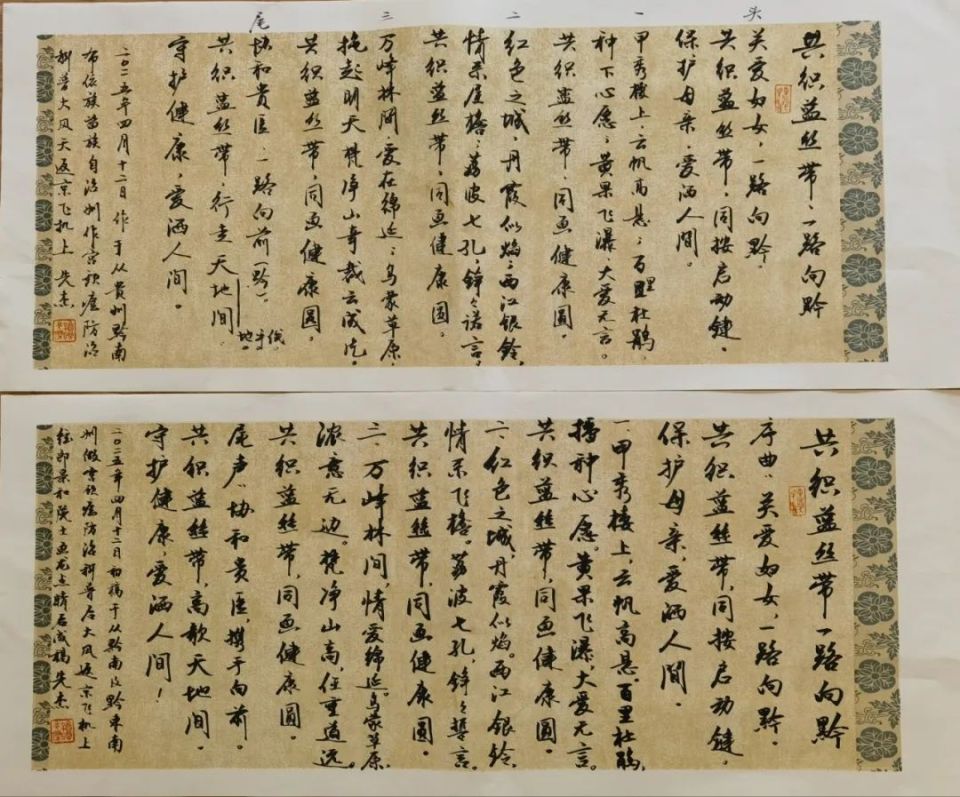 头
一
二
三
尾
共织蓝丝带·一路向黔
关爱妇女,一路向黔.
共织蓝丝带,同按启动键.
保护母亲,爱洒人间.
甲秀楼上,云帆高悬;百里杜鹃
种下心愿,黄果飞瀑,大爱无言。
共织蓝丝带,同画健康圆.
红色之城,丹霞似焰;西江银铃,
情系屋檐;荔波七孔,铮々诺言.
共织蓝丝带,同画健康圆.
万峰林间,爱在绵延;乌蒙草原,
托起明天;梵净山奇,裁云成
共织蓝丝带,同画健康圆.
协和贵医,一路向前(黔).
共织蓝丝带,行走天地间
守护健康,爱洒人间.
二〇二五年四月十二日作于从贵州黔南
布依族苗族自治州作宫颈癌防治
科普大风天返京飞机上
共织蓝丝带 一路向黔
序曲:关爱妇女,一路向黔.
共织蓝丝带,同按启动键.
保护母亲,爱洒人间.
一.甲秀楼上,云帆高悬.百里杜鹃,
播种心愿.黄果飞瀑,大爱无言.
共织蓝丝带,同画健康圆.
二.红色之城,丹霞似焰.西江银铃,
情系飞檐.荔波七孔,铮々誓言.
共织蓝丝带,同画健康圆.
三.万峰林间,情爱绵延.乌蒙草原,
浓意无边.梵净山高,任重道远.
共织蓝丝带,同画健康圆.
尾声:协和贵医,携手向前.
共织蓝丝带,高歌天地间.
守护健康,爱洒人间!
二〇二五年四月十二日初稿于从黔南及黔东南
州做宫颈癌防治科普后大风返京飞机上
经郎景和院士画龙点睛后成稿